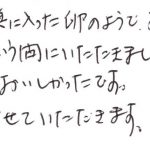 に入った卯のようで、
いう間にいただきまし
おいしかったです。
せていただきます。